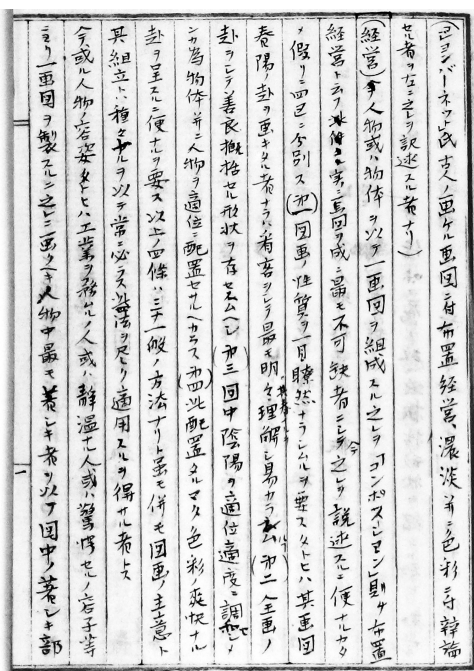 (ヨヨンバーネツ氏古人ノ画ケル画図ニ付布置経営、濃淡并ニ色彩ニ付辯論
セル者ヲ左ニ之レヲ訳述スル者ナリ)
(経営)今人物或ハ物体ヲ以テ一画図ヲ組成スル之レヲコンポスーシヨン則チ布置
経営ト云フ 実ニ画図ヲ成ニ最モ不可缺者ニシテ今之レヲ説述スルニ便ナルカタ
メ假リニ四己ニ分別ス(第一)図画ノ性質ヲ一目瞭然ナラシムルヲ要スタトヒハ其画図
春陽ノ卦ヲ画キタル者ナラハ看客ヲシテ最モ明々理解シ易カラシム(第二)全画ノ
卦ヲシテ善良概括セル形状ヲ存セセムヘシ(第三)図中陰陽ノ適位適度ニ調和シ
シカ為物体并ニ人物ヲ適位ニ配置セサルヘカラス(第四)此配置タルマタ色彩爽快ナル
卦ヲ呈スルニ便ナルヲ要ス以上ノ四條ハミナ一般ノ方法ナリト虽モ併モ図画ノ主意ト
其組立トハ種々ナルヲ以テ常ニ必ラス此法ヲ尽ク適用スルヲ得サル者トス
今或ル人物ノ容姿タトヒハ工業ヲ務ル人或ハ静温ナル人或ハ驚愕セルノ容子等
ヨリ一画図ヲ製スルニ之レニ画ク人物中最モ著シキ者ヲ以テ図中ノ著シキ部